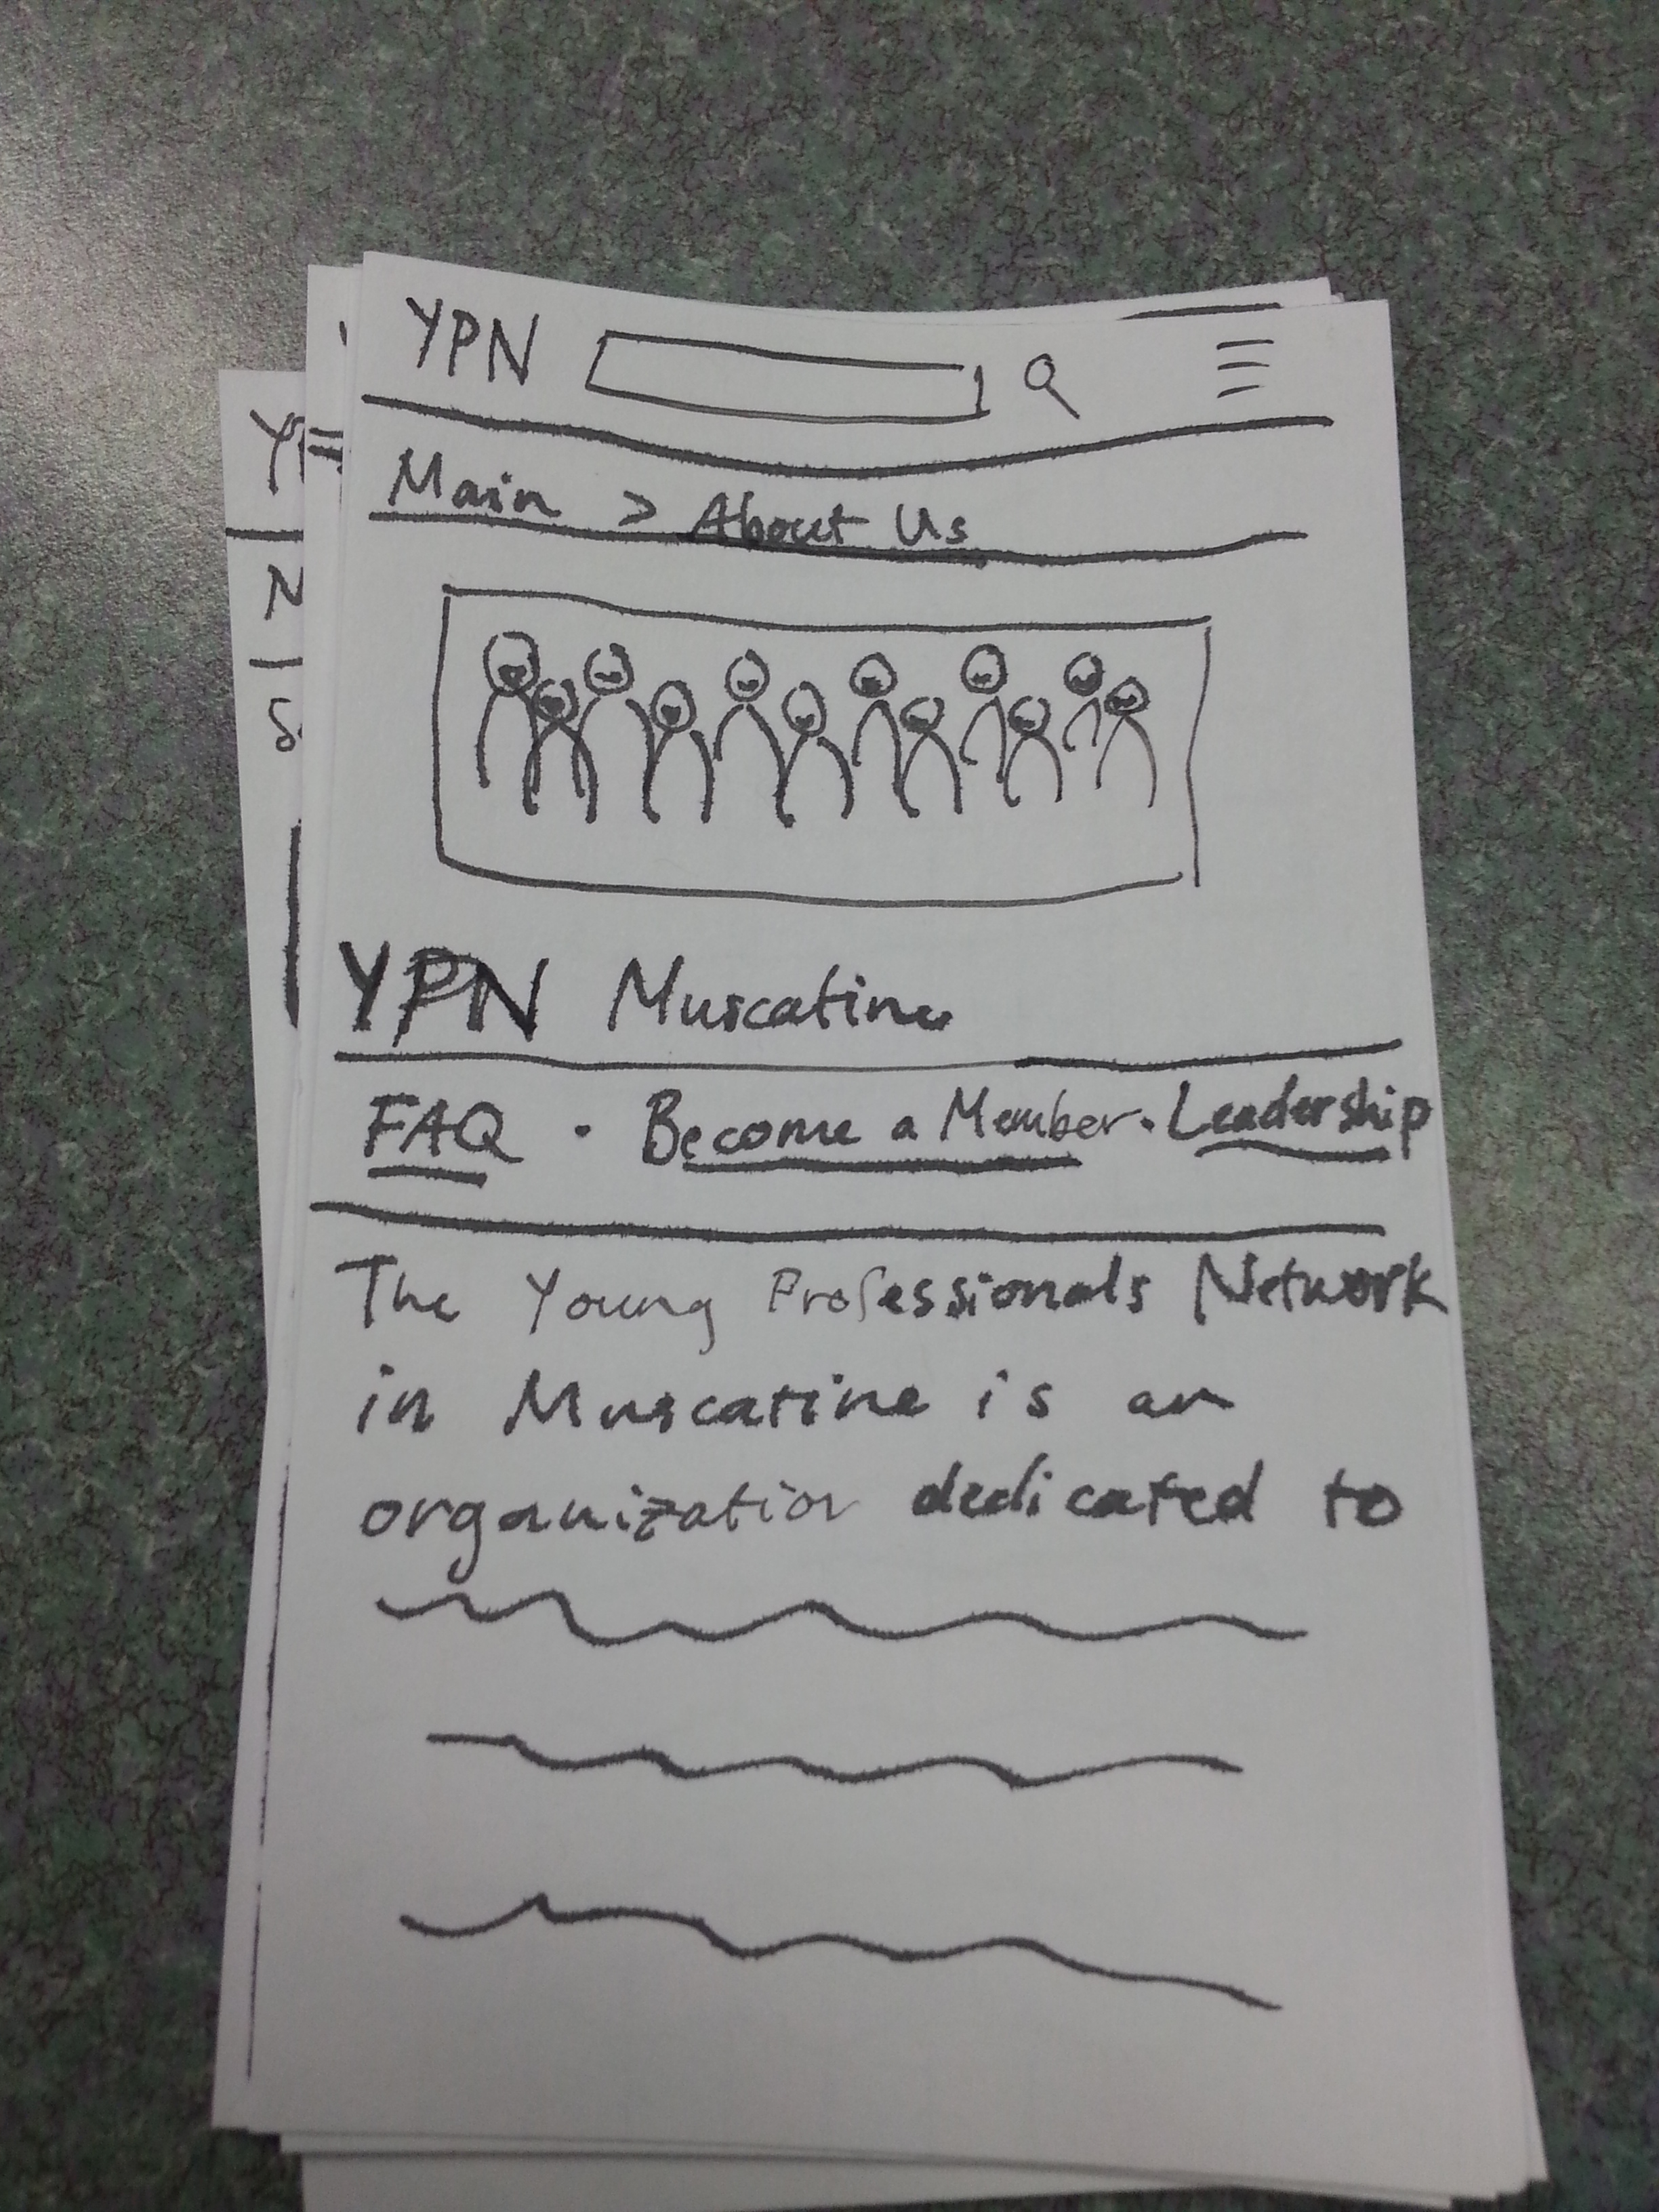 YPN
Main > About Us
YPN Muscatine
FAQ · Become a Member · Leadership
The Young Professionals Network
in Muscatine is an
organization dedicated to